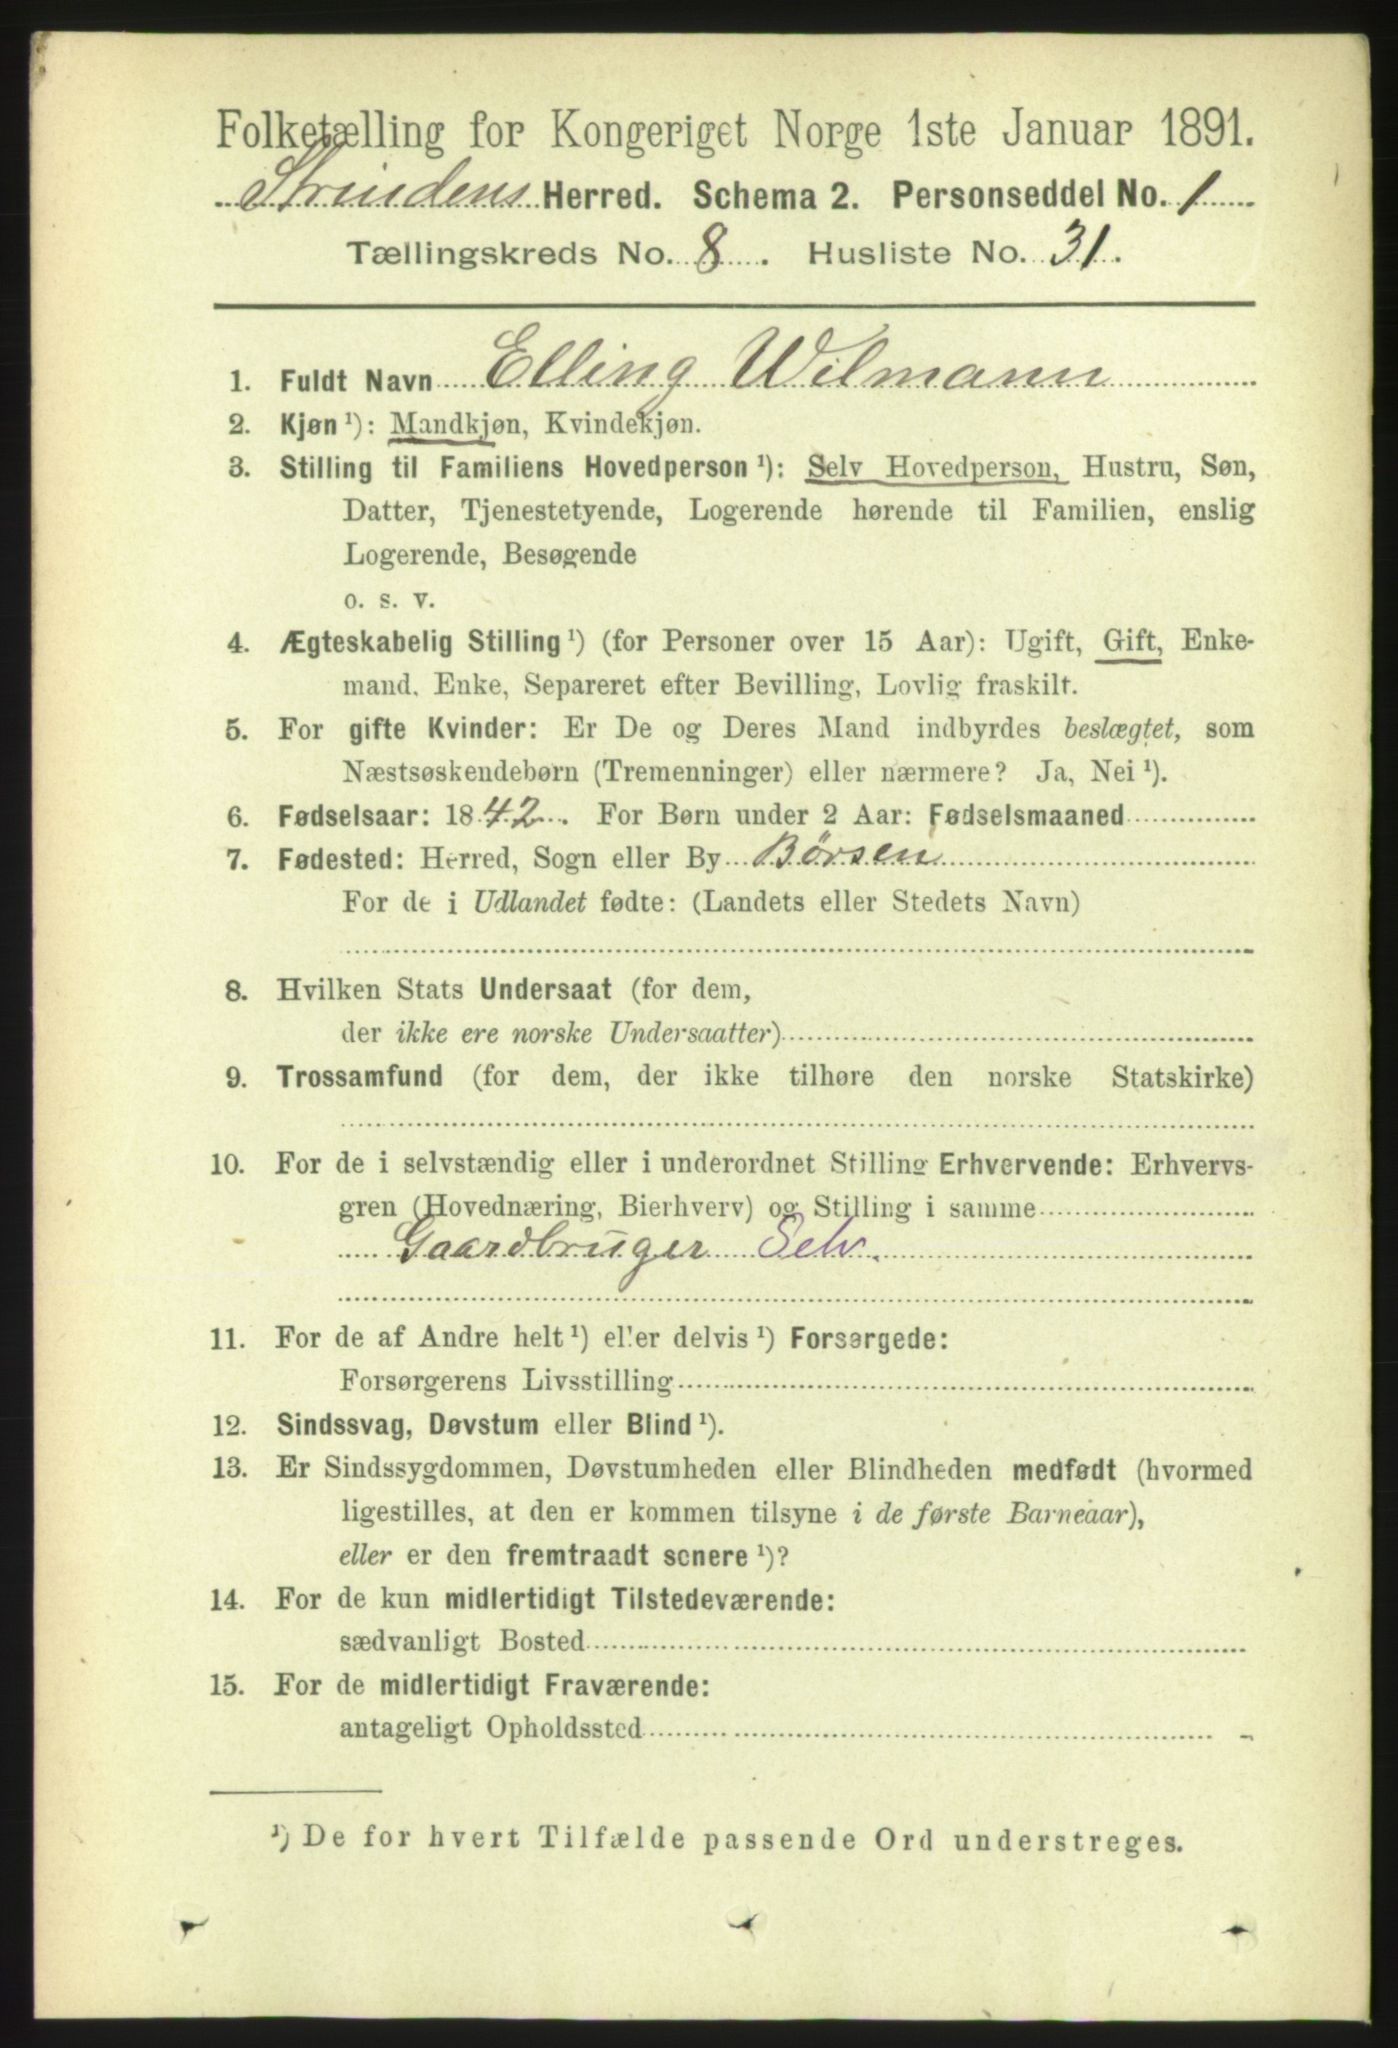 Folketælling for Kongeriget Norge 1ste Januar 1891.
Strindens Herred. Schema 2. Personseddel No. 1
Tællingskreds No. 8. Husliste No. 31.
1. Fuldt Navn Elling Wilmann
2. Kjøn ¹): Mandkjøn, Kvindekjøn.
3. Stilling til Familiens Hovedperson ¹): Selv Hovedperson, Hustru, Søn,
Datter, Tjenestetyende, Logerende hørende til Familien, enslig
Logerende, Besøgende
o. s. v.
4. Ægteskabelig Stilling ¹) (for Personer over 15 Aar): Ugift, Gift, Enke-
mand, Enke, Separeret efter Bevilling, Lovlig fraskilt.
5. For gifte Kvinder: Er De og Deres Mand indbyrdes beslægtet, som
Næstsøskendebørn (Tremenninger) eller nærmere? Ja, Nei ¹).
6. Fødselsaar: 1842. For Børn under 2 Aar: Fødselsmaaned
7. Fødested: Herred, Sogn eller By Børsen
For de i Udlandet fødte: (Landets eller Stedets Navn)
8. Hvilken Stats Undersaat (for dem,
der ikke ere norske Undersaatter)
9. Trossamfund (for dem, der ikke tilhøre den norske Statskirke)
10. For de i selvstændig eller i underordnet Stilling Erhvervende: Erhvervs-
gren (Hovednæring, Bierhverv) og Stilling i samme
Gaardbruger Selv.
11. For de af Andre helt ¹) eller delvis ¹) Forsørgede:
Forsørgerens Livsstilling
12. Sindssvag, Døvstum eller Blind ¹).
13. Er Sindssygdommen, Døvstumheden eller Blindheden medfødt (hvormed
ligestilles, at den er kommen tilsyne i de første Barneaar),
eller er den fremtraadt senere ¹)?
14. For de kun midlertidigt Tilstedeværende:
sædvanligt Bosted
15. For de midlertidigt Fraværende:
antageligt Opholdssted
¹) De for hvert Tilfælde passende Ord understreges.